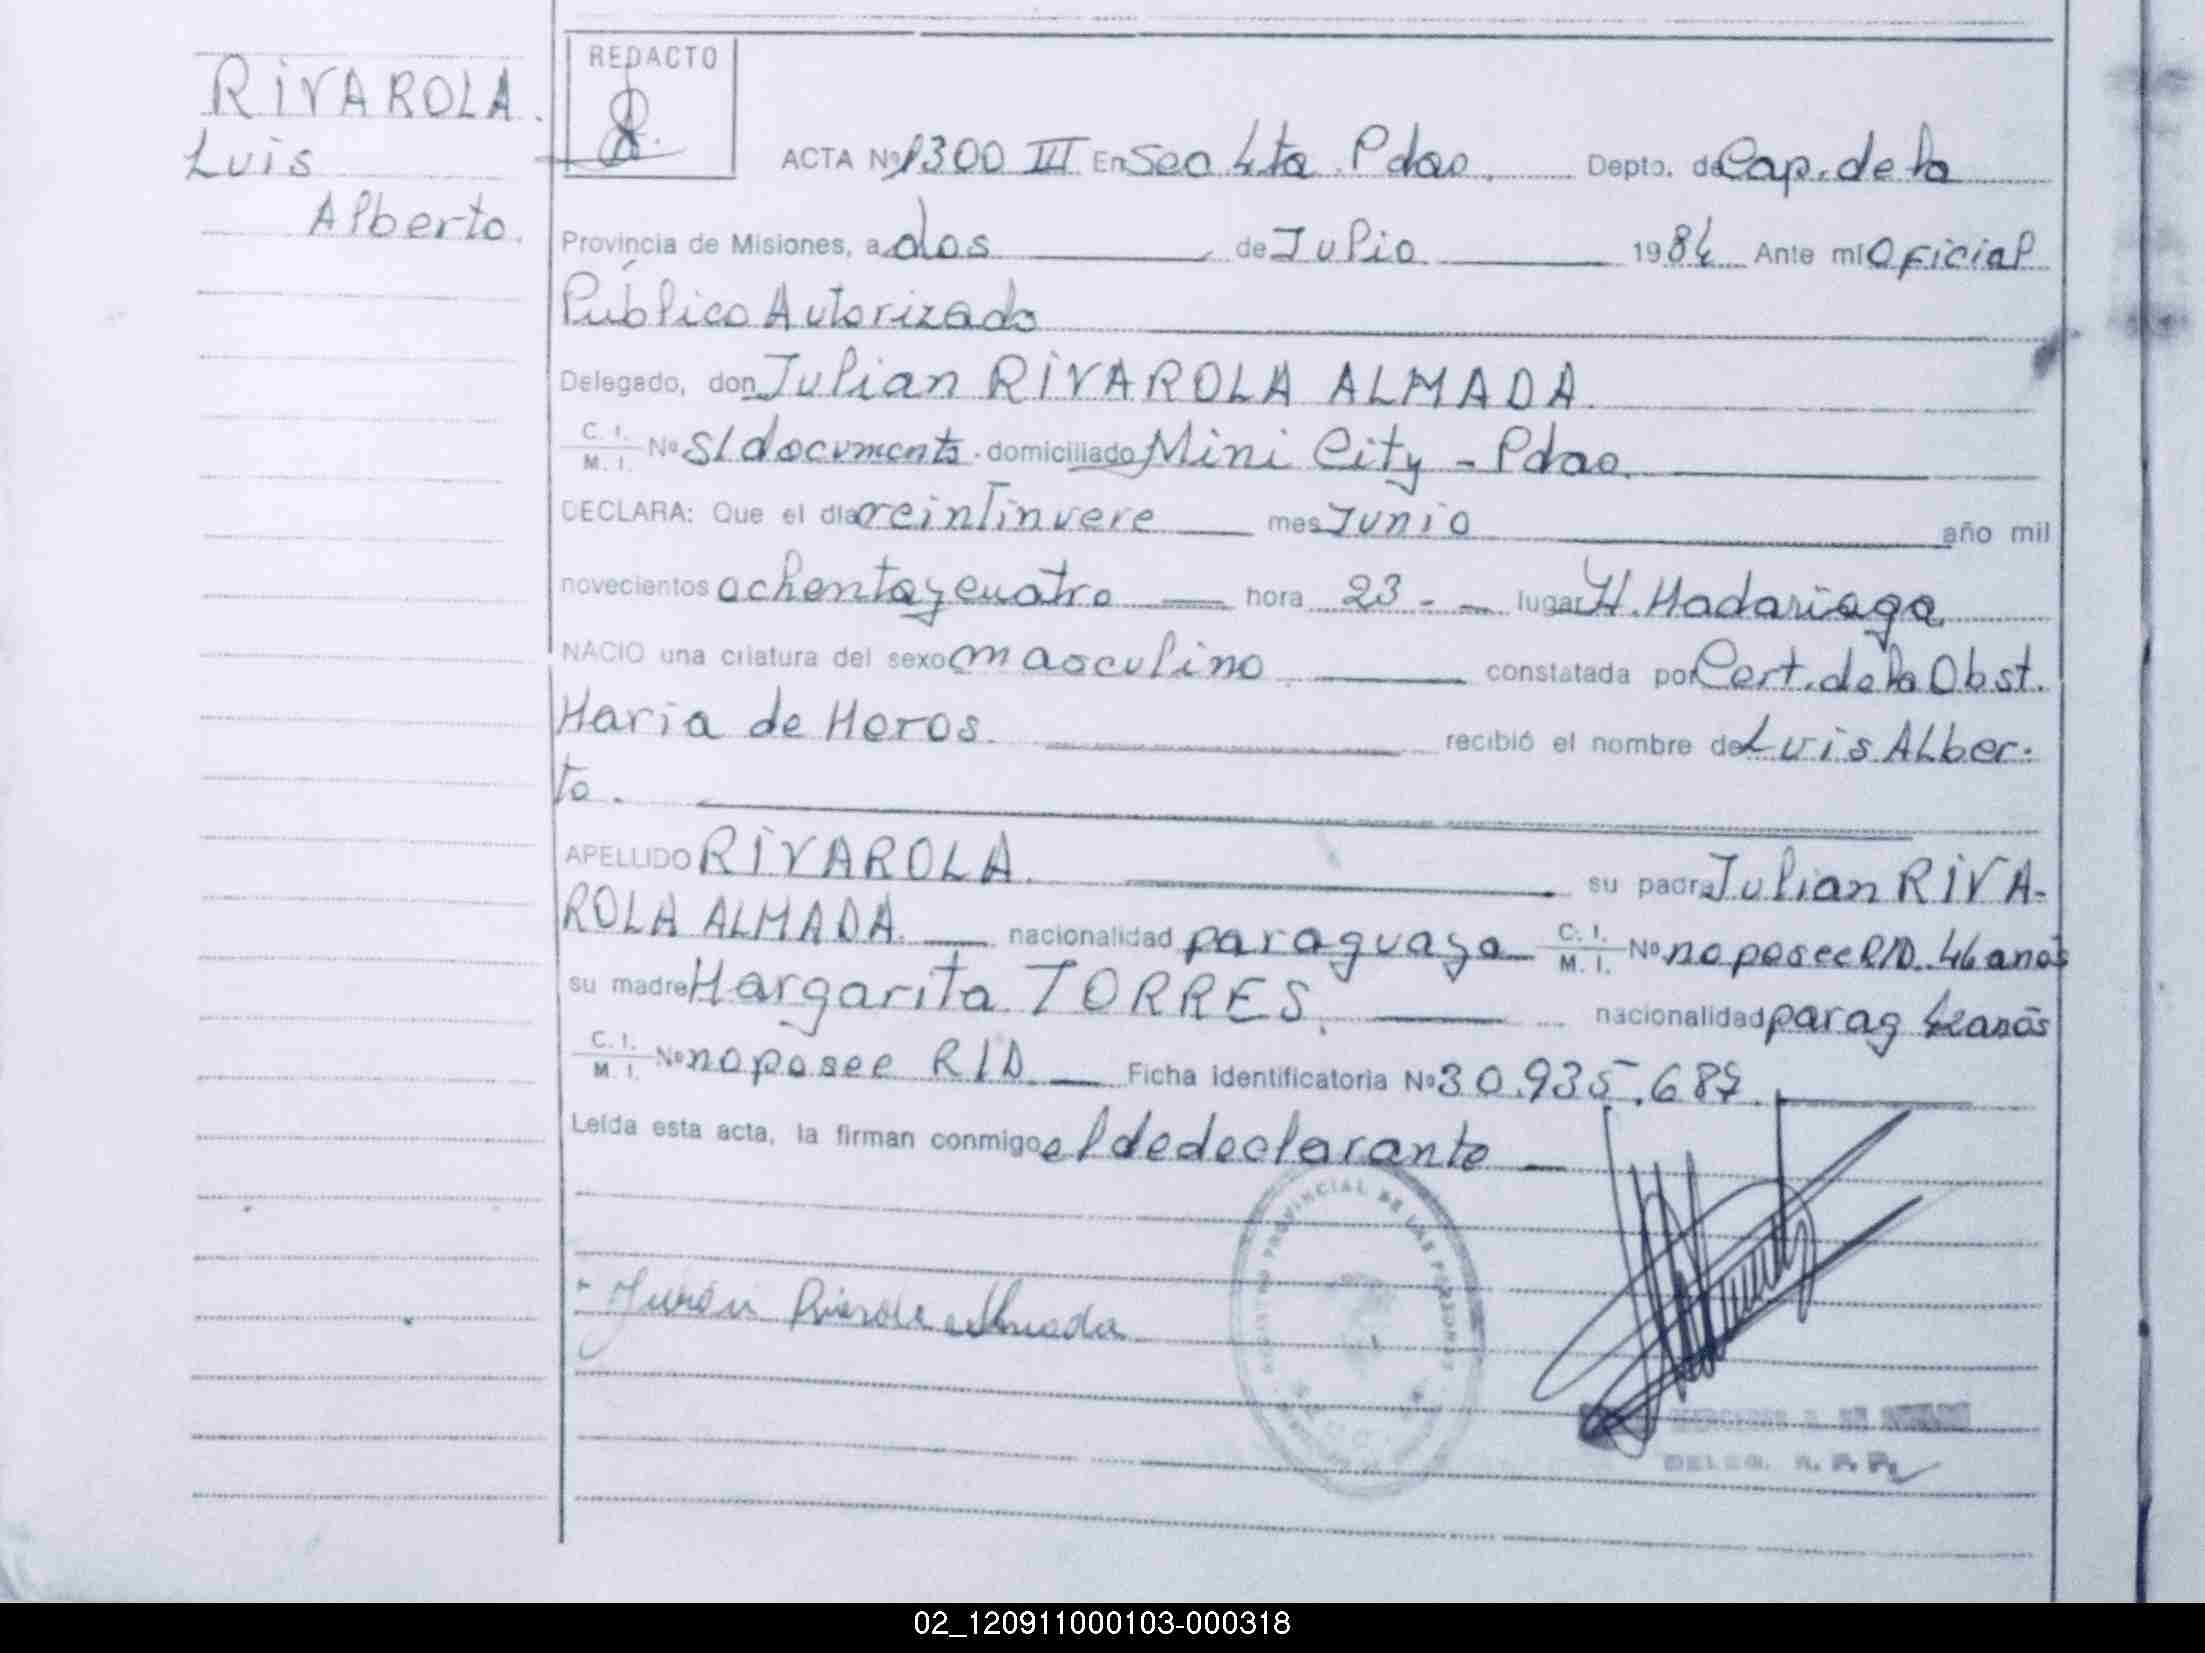 RIVAROLA.
Luis
Alberto.
REDACTO
ACTA Nº 1300 III En Sec 4ta. Pdas. Depto. de Cap. de la
Provincia de Misiones, a dos de Julio 1984 Ante mí Oficial
Público Autorizado
Delegado, don Julian RIVAROLA ALMADA.
C. I. M. I. Nº S/documento. domiciliado Mini City - Pdas.
DECLARA: Que el día veintinueve mes Junio año mil
novecientos ochenta y cuatro hora 23 - lugar H. Madariaga
NACIO una criatura del sexo masculino constatada por Cert. de la Obst.
Maria de Meros. recibió el nombre de Luis Alber-
to.
APELLIDO RIVAROLA. su padre Julian RIVA-
ROLA ALMADA. nacionalidad paraguaya C. I. M. I. Nº no posee R/D. 46 anos
su madre Margarita TORRES. nacionalidad parag 42 anos
C. I. M. I. Nº no posee R/D Ficha identificatoria Nº 30.935.687.
Leída esta acta, la firman conmigo el dedeclarante
REGISTRO PROVINCIAL DE LAS PERSONAS
Rivarola Almada
DELEG. R. P. P.
02_120911000103-000318